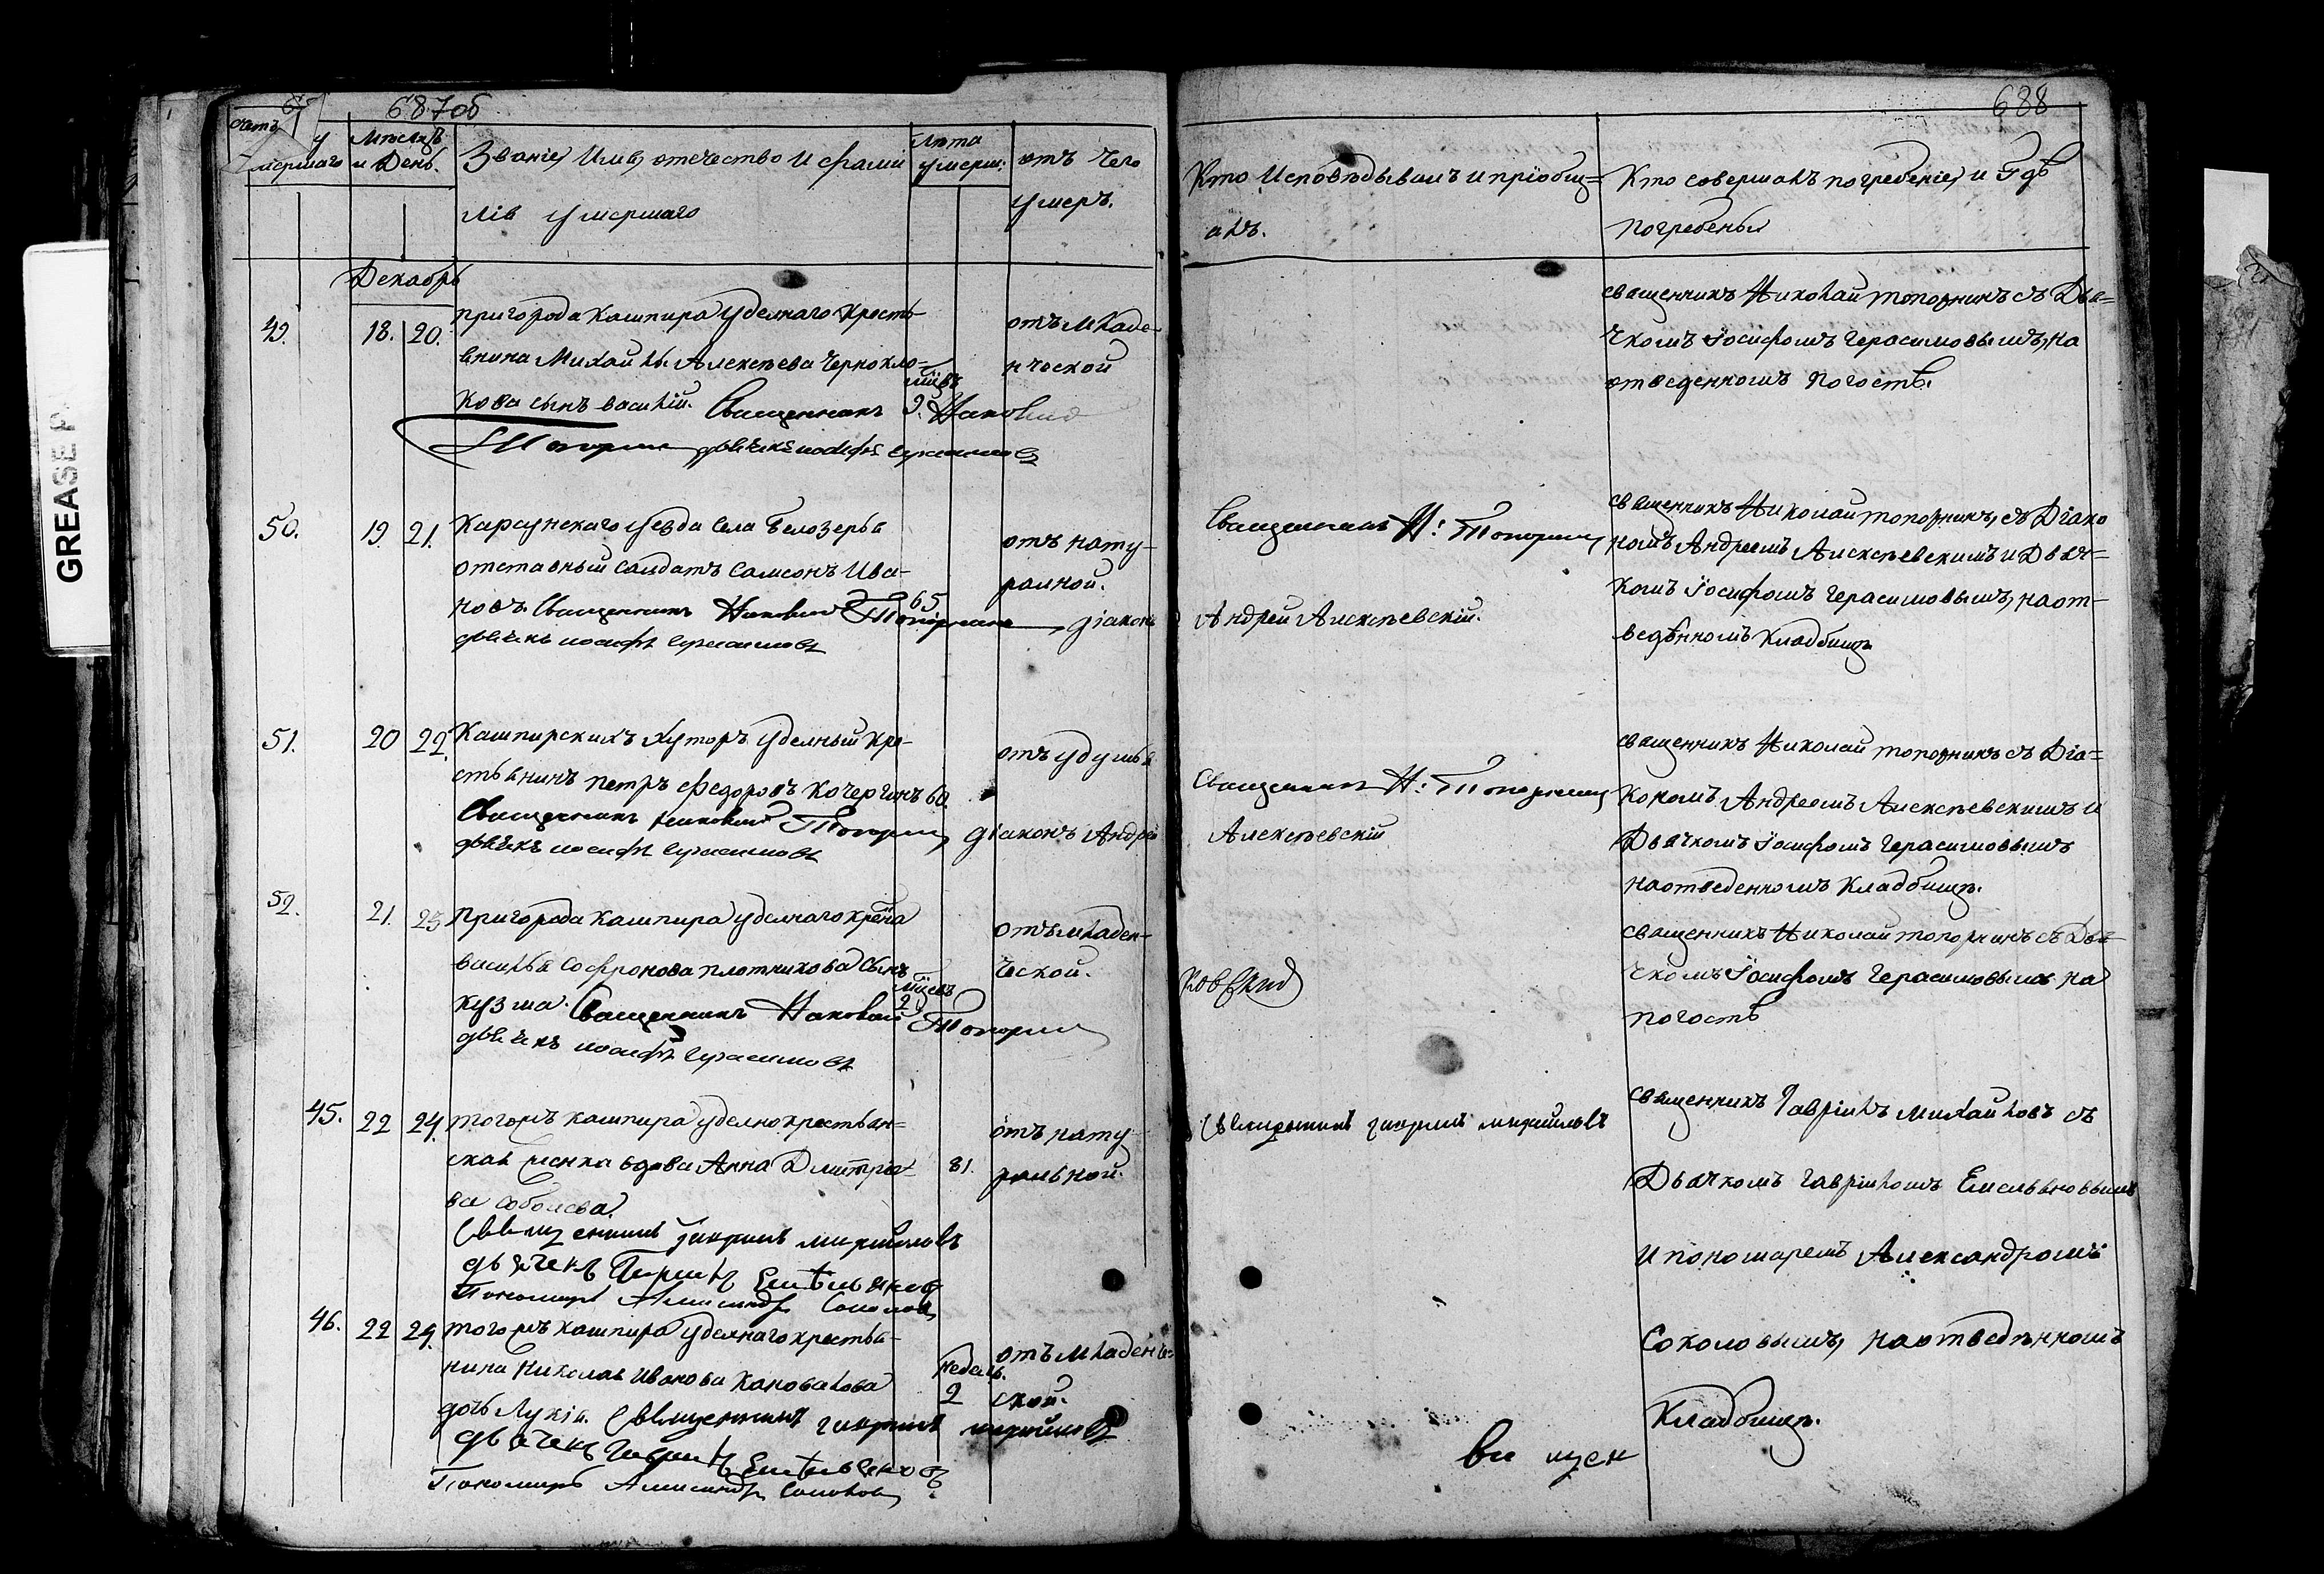 687об
688
Счетъ
умершаго
Мѣсяцъ
и День.
Званіе, Имя, отечество и фами
лія умершаго
Лѣта
умерш:
отъ чего
умеръ.
Кто Исповѣдывалъ и пріобщ=
алъ.
Кто совершалъ погребеніе, и Гдѣ
погребены
Декабрь
49.
18. 20.
пригорода Кашпира Уделнаго Кресть-
янина Михайлы Алексѣева Черноклo=
кова сынъ василій. Священникъ Николай
9.
отъ младе-
нческой
Топорнинъ дьячекъ иосифъ Герасимовъ
священникъ Николай топорнинъ съ Дья=
чкомъ Іосифомъ Герасимовымъ, на
отведенномъ погостѣ.
50.
19. 21.
Карсунскаго уезда села Белозерья
отставный солдатъ Самсонъ Ива-
новъ. Священникъ Николай Топорнинъ діаконъ
65
дьячекъ иосифъ Герасимовъ
отъ нату-
ралной.
Священникъ Н: Топорнинъ
Андрей Алексѣевскій.
священникъ Николай топорнинъ, съ Діако
номъ Андреемъ Алексѣевскимъ и Дьяч=
комъ Іосифомъ Герасимовымъ, на от-
веденномъ кладбищѣ
51.
20 22.
Кашпирскихъ Хуторъ уделный кре-
стьянинъ петръ Федоровъ Кочергинъ 60.
Священникъ Николай Топорнинъ діаконъ Андрей
дьячекъ иосифъ Герасимовъ
отъ удушья
Священникъ Н: Топорнинъ
Алексѣевскій
священникъ Николай топорнинъ съ Діа=
кономъ Андреемъ Алексѣевскимъ и
Дьячкомъ Іосифомъ Герасимовымъ
на отведенномъ кладбищѣ.
52.
21. 23
пригорода Кашпира уделнаго крена
василья Софронова плотникова сынъ
кузма. Священникъ Николай Топорнинъ
2
дьячекъ иосифъ Герасимовъ
отъ младен-
ческой.
священникъ Николай топорнинъ съ Дья-
чкомъ Іосифомъ Герасимовымъ на
погостѣ
45.
22 24.
тогожъ кашпира уделнокрестьян=
ская женка вдова Анна Дмитріе-
ва Соболева.
81.
отъ нату-
ральной.
Священникъ гавриилъ михайловъ
дьячекъ Гавриилъ Емѣльяновъ
Пономарь Александръ Соколовъ
Священникъ гавриилъ михайловъ
священникъ Гавріилъ Михайловъ съ
Дьячкомъ Гавріиломъ Емельяновымъ
и пономаремъ Александромъ
Соколовымъ, на отведѣнномъ
Кладбищѣ.
46.
22 24.
тогожъ кашпира уделнаго крестья-
нина Николая Иванова Коновалова
дочь Лукія. Священникъ гавриилъ михайловъ
недель.
2
отъ младенче=
ской.
дьячекъ Гавриилъ Емѣльяновъ
Пономарь Александръ Соколовъ
вя щен
GREASE P